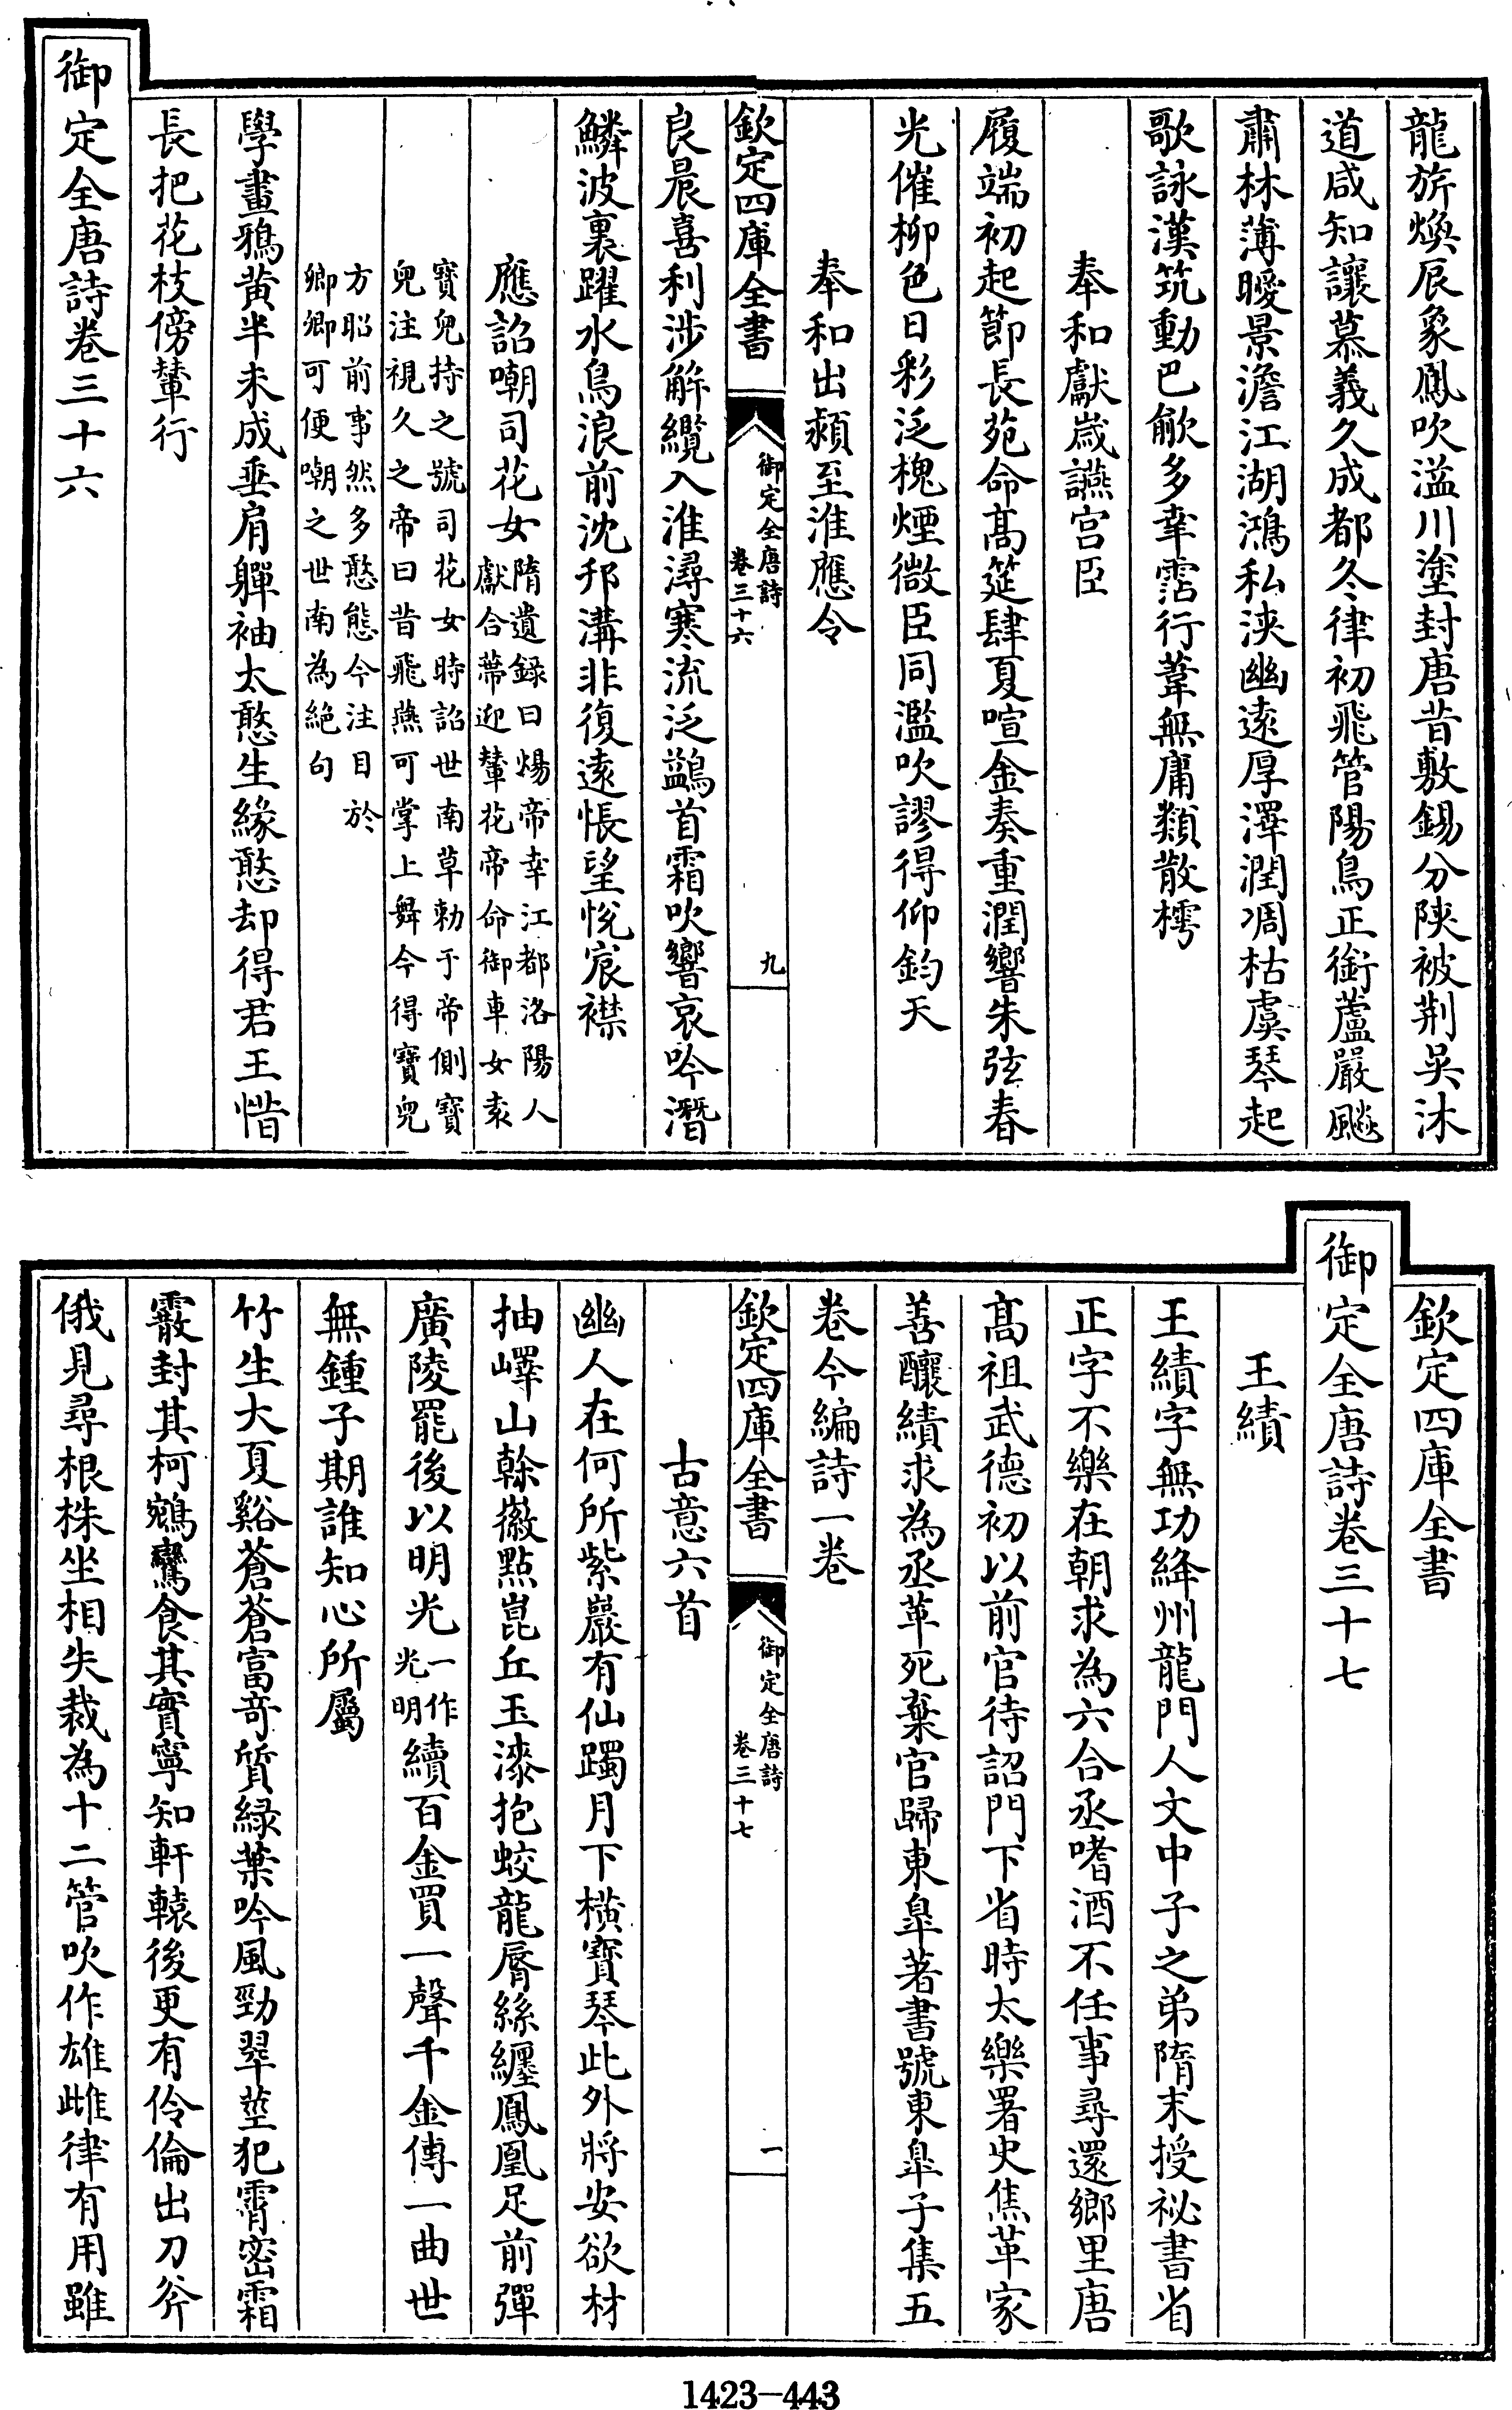 龍旂煥辰象鳳吹溢川塗封唐昔敷錫分陜被荆吴沐
道咸知讓慕義久成都冬律初飛管陽鳥正銜蘆嚴飈
肅林薄曖景澹江湖鴻私浹幽遠厚澤潤凋枯虞琴起
歌詠漢筑動巴歈多幸霑行葦無庸類散樗
奉和獻歲讌宫臣
履端初起節長苑命髙筵肆夏喧金奏重潤響朱弦春
光催柳色日彩泛槐煙微臣同濫吹謬得仰鈞天
奉和出潁至淮應令
欽定四庫全書
御定全唐詩
卷三十六
九
良晨喜利涉解纜入淮潯寒流泛鷁首霜吹響哀吟潛
鱗波裏躍水鳥浪前沈邗溝非復遠悵望悅宸襟
應詔嘲司花女
隋遺録曰煬帝幸江都洛陽人
獻合蔕迎輦花帝命御車女袁
寶兒持之號司花女時詔世南草勅于帝側寶
兒注視久之帝曰昔飛燕可掌上舞今得寶兒
方昭前事然多憨態今注目於
卿卿可便嘲之世南為絶句
學畫鴉黄半未成垂肩嚲袖太憨生緣憨却得君王惜
長把花枝傍輦行
御定全唐詩卷三十六
欽定四庫全書
御定全唐詩卷三十七
王績
王績字無功絳州龍門人文中子之弟隋末授祕書省
正字不樂在朝求為六合丞嗜酒不任事尋還鄉里唐
髙祖武德初以前官待詔門下省時太樂署史焦革家
善釀績求為丞革死棄官歸東臯著書號東臯子集五
卷今編詩一卷
欽定四庫全書
御定全唐詩
卷三十七
一
古意六首
幽人在何所紫巖有仙躅月下横寶琴此外將安欲材
抽嶧山榦徽點崑丘玉漆抱蛟龍脣絲纒鳳凰足前彈
廣陵罷後以明光
一作
光明
續百金買一聲千金傳一曲世
無鍾子期誰知心所屬
竹生大夏谿蒼蒼富奇質緑葉吟風勁翠莖犯霄密霜
霰封其柯鵷鸞食其實寧知軒轅後更有伶倫出刀斧
俄見尋根株坐相失裁為十二管吹作雄雌律有用雖
1423-443